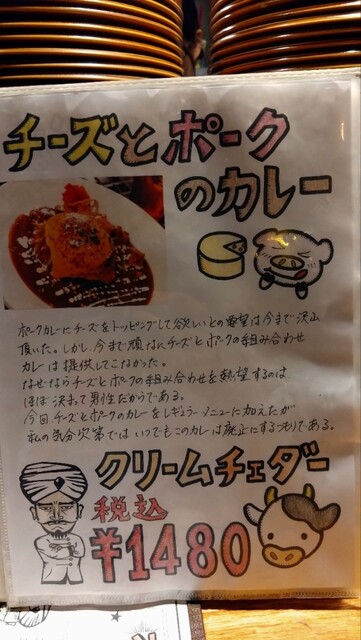 チーズとポーク
のカレー
ポークカレーにチーズをトッピングして欲しいとの要望は今まで沢山
頂いた。しかし、今まで頑なにチーズとポークの組み合わせ
カレーは提供してこなかった。
なぜならチーズとポークの組み合わせを熱望するのは
ほぼ決まって男性だからである。
今回チーズとポークのカレーをレギュラーメニューに加えたが
私の気分次第ではいつでもこのカレーは廃止にするつもりである。
クリームチェダー
税込
¥1480